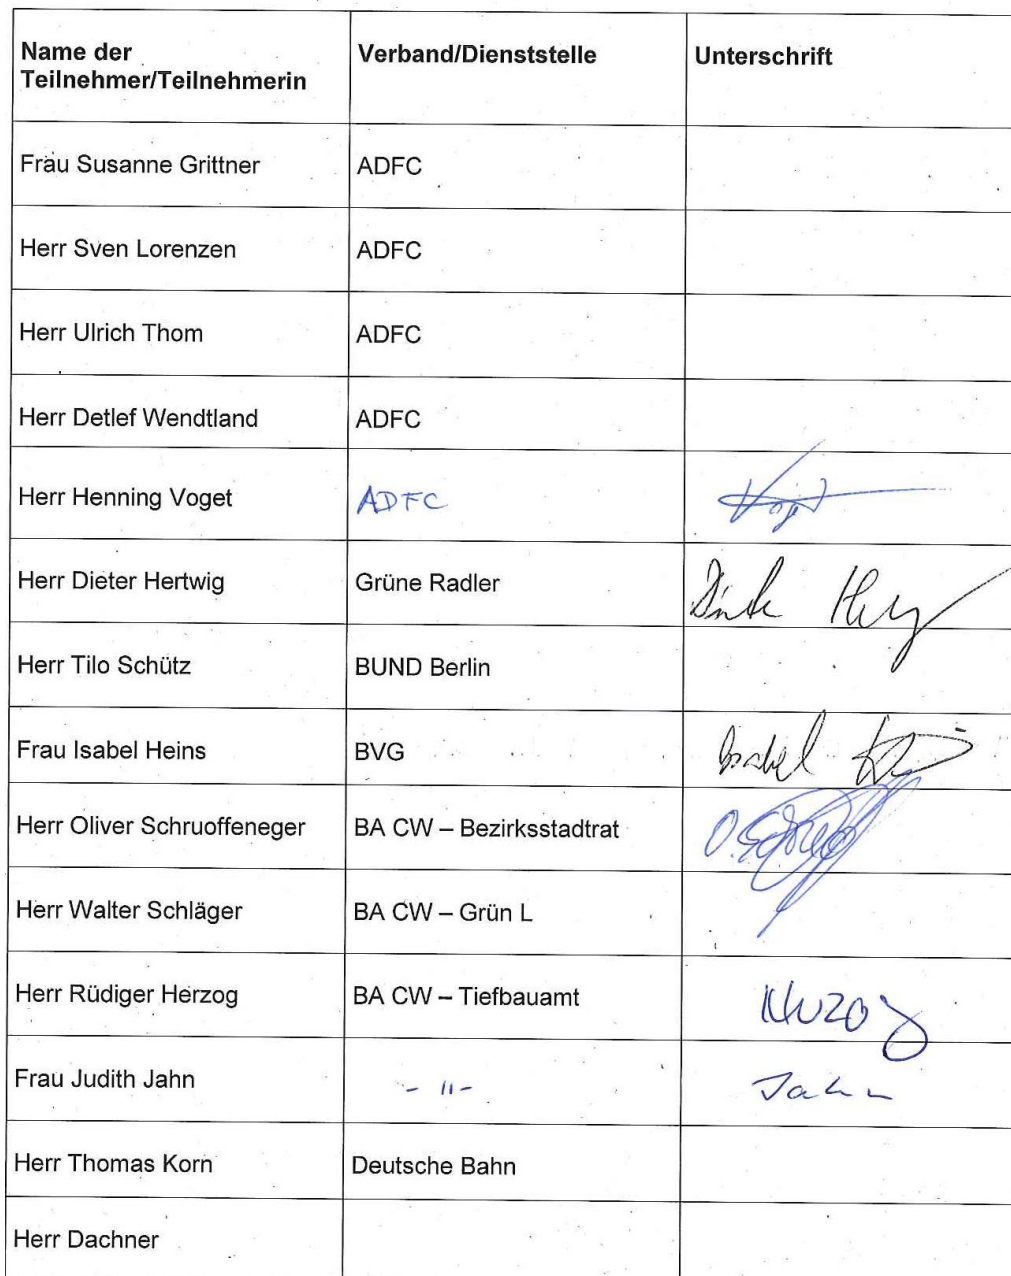 Name der Teilnehmer/Teilnehmerin Verband/Dienststelle Unterschrift
Frau Susanne Grittner ADFC
Herr Sven Lorenzen ADFC
Herr Ulrich Thom ADFC
Herr Detlef Wendtland ADFC
Herr Henning Voget ADFC Voget
Herr Dieter Hertwig Grüne Radler
Herr Tilo Schütz BUND Berlin
Frau Isabel Heins BVG Isabel
Herr Oliver Schruoffeneger BA CW – Bezirksstadtrat
Herr Walter Schläger BA CW – Grün L
Herr Rüdiger Herzog BA CW – Tiefbauamt Herzog
Frau Judith Jahn - 11 - Jahn
Herr Thomas Korn Deutsche Bahn
Herr Dachner